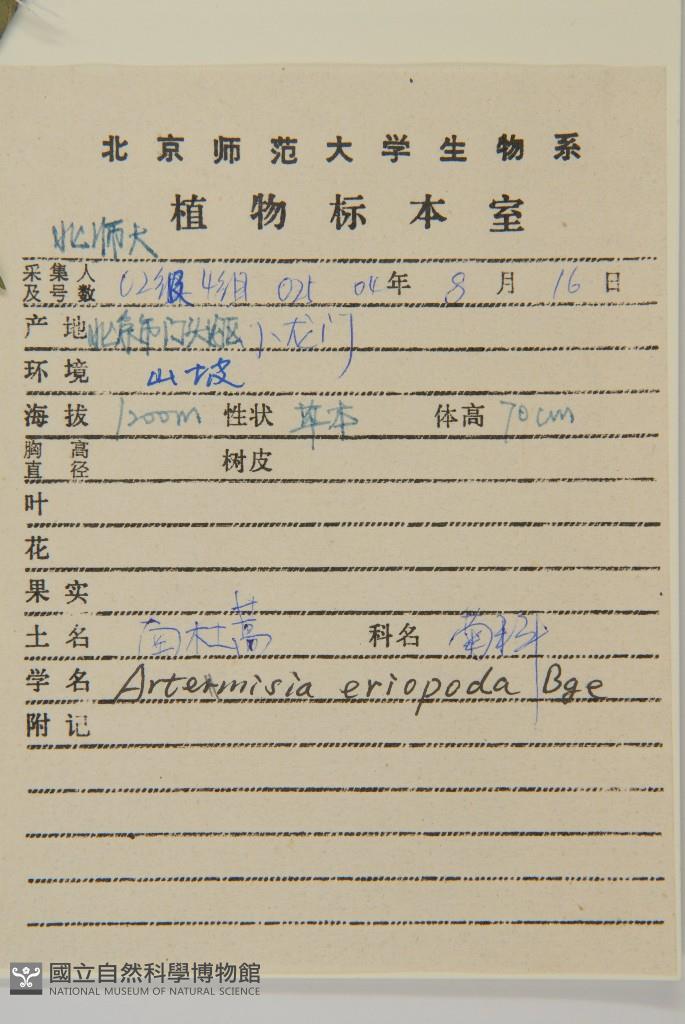 北京师范大学生物系
植物标本室
北师大
采集人及号数 02级4组 025 04年 8月 16日
产地 北京市门头沟区小龙门
环境 山坡
海拔 1200m 性状 草本 体高 70cm
胸高直径 树皮
叶
花
果实
土名 牡蒿 科名 菊科
学名 Artemisia eriopoda Bge
附记
國立自然科學博物館
NATIONAL MUSEUM OF NATURAL SCIENCE